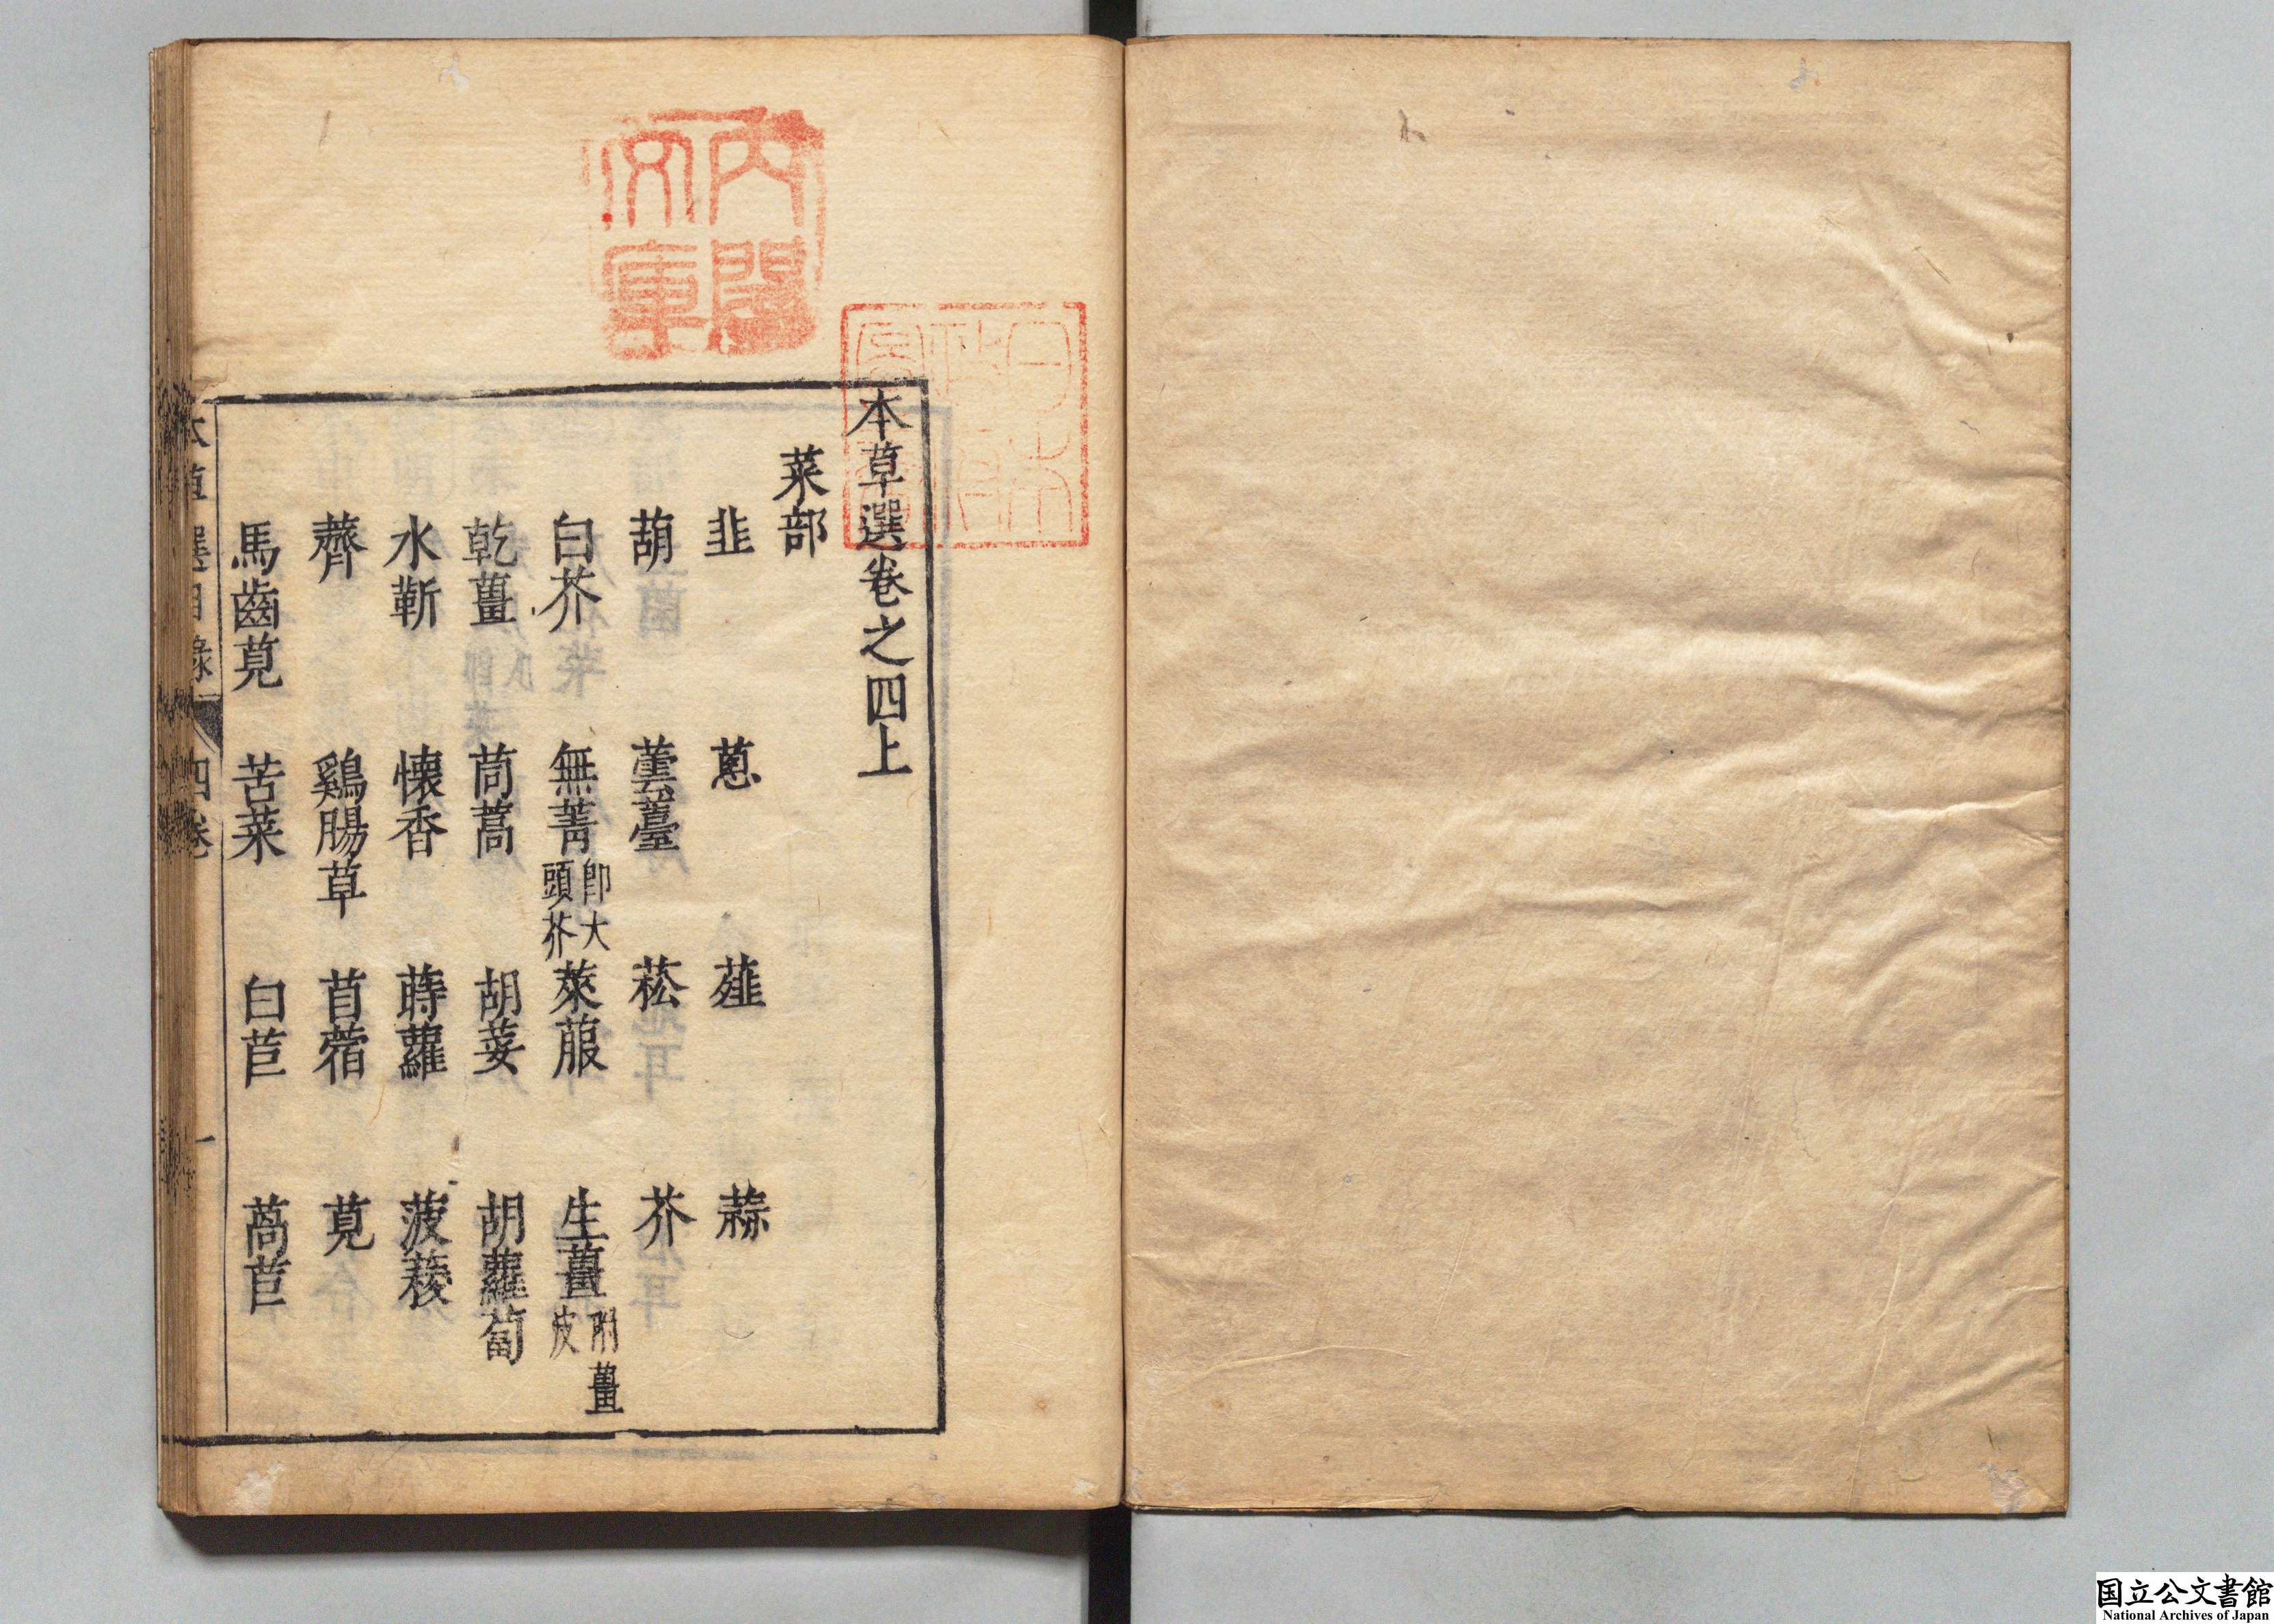 本草選卷之四上
菜部
韭 蔥 薤 蒜
葫 蕓薹 菘 芥
白芥 無菁 即大頭芥 萊菔 生薑 附薑皮
乾薑 茼蒿 胡荽 胡蘿蔔
水蘄 懷香 蒔蘿 菠薐
薺 鷄腸草 苜蓿 莧
馬齒莧 苦菜 白苣 萵苣
本草選目錄 四卷 一
內閣文庫
日本政府圖書
国立公文書館
National Archives of Japan